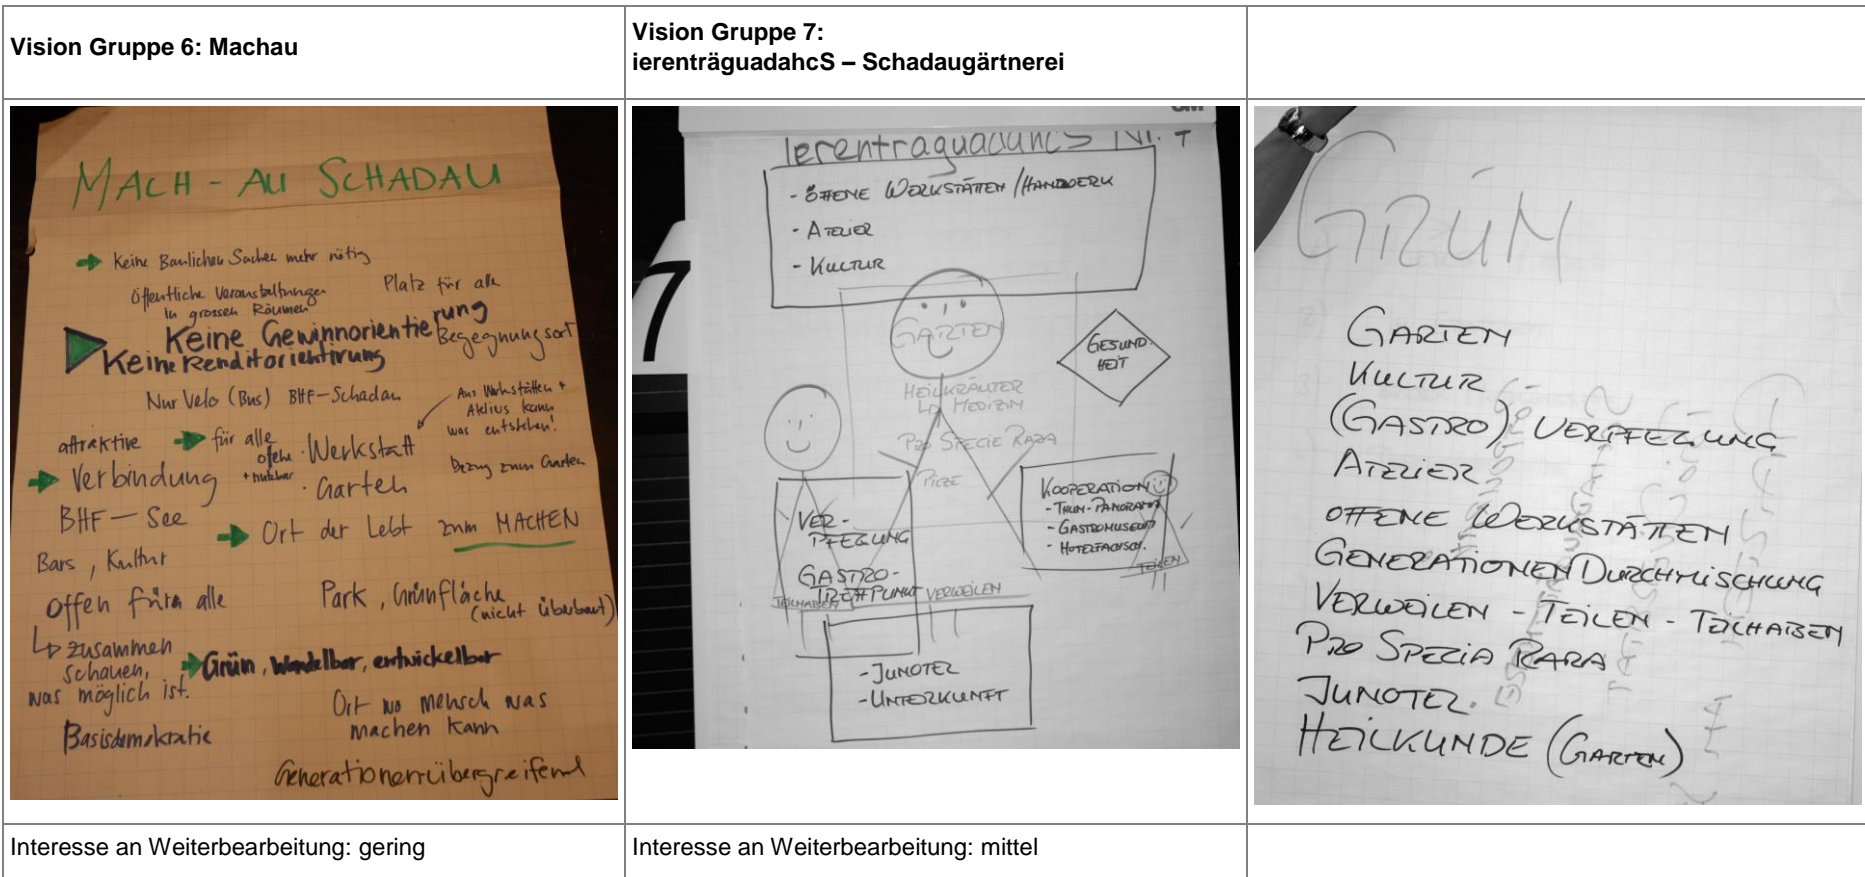 Vision Gruppe 6: Machau
Vision Gruppe 7:
ierenträguadahcS – Schadaugärtnerei
MACH - AU SCHADAU
Keine Baulichen Sachen mehr nötig
Öffentliche Veranstaltungen
in grossen Räumen
Platz für alle
Keine Gewinnorientierung
Keine Renditorientirung
Begegnungsort
Nur Velo (Bus) BHF-Schadau
Aus Werkstätten +
Aktivis kann
was entstehen!
attraktive
Verbindung
BHF - See
für alle
offene
+ nutzbar
· Werkstatt
· Garten
bezug zum Garten
Ort der Lebt zum MACHEN
Bars, Kultur
Offen für alle
zusammen
schauen,
was möglich ist.
Park, Grünfläche
(nicht überbaut)
Grün, Wandelbar, entwickelbar
Ort wo mensch was
machen kann
Basisdemokratie
Generationenübergreifend
7
- OFFENE WERKSTÄTTEN / HANDWERK
- ATELIER
- KULTUR
GARTEN
GESUND-
HEIT
HEILKRÄUTER
MEDIZIN
PRO SPECIE RARA
PILZE
VER-
PFLEGUNG
GASTRO-
TREFFPUNKT
TEILHABEN
VERWEILEN
KOOPERATION
- THUN-PANORAMA
- GASTROMUSEUM
- HOTELFACHSCH.
TEILEN
- JUNOTEL
- UNTERKUNFT
GRÜN
GARTEN
KULTUR
(GASTRO) VERPFLEGUNG
ATELIER
OFFENE WERKSTÄTTEN
GENERATIONEN DURCHMISCHUNG
VERWEILEN - TEILEN - TEILHABEN
PRO SPEZIA RARA
JUNOTEL
HEILKUNDE (GARTEN)
Interesse an Weiterbearbeitung: gering
Interesse an Weiterbearbeitung: mittel